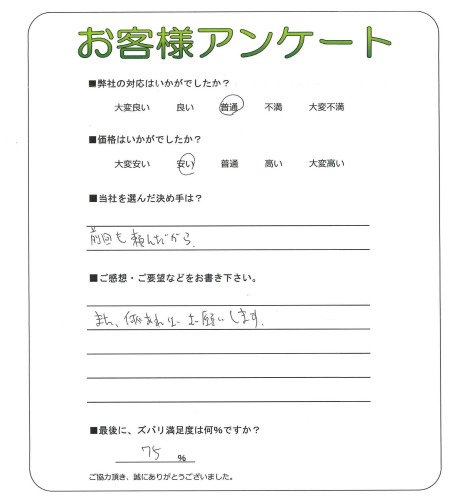 お客様アンケート
■弊社の対応はいかがでしたか？
大変良い 良い 普通 不満 大変不満
■価格はいかがでしたか？
大変安い 安い 普通 高い 大変高い
■当社を選んだ決め手は？
前回も頼んだから．
■ご感想・ご要望などをお書き下さい。
また、何かあればお願いします．
■最後に、ズバリ満足度は何%ですか？
75 %
ご協力頂き、誠にありがとうございました。